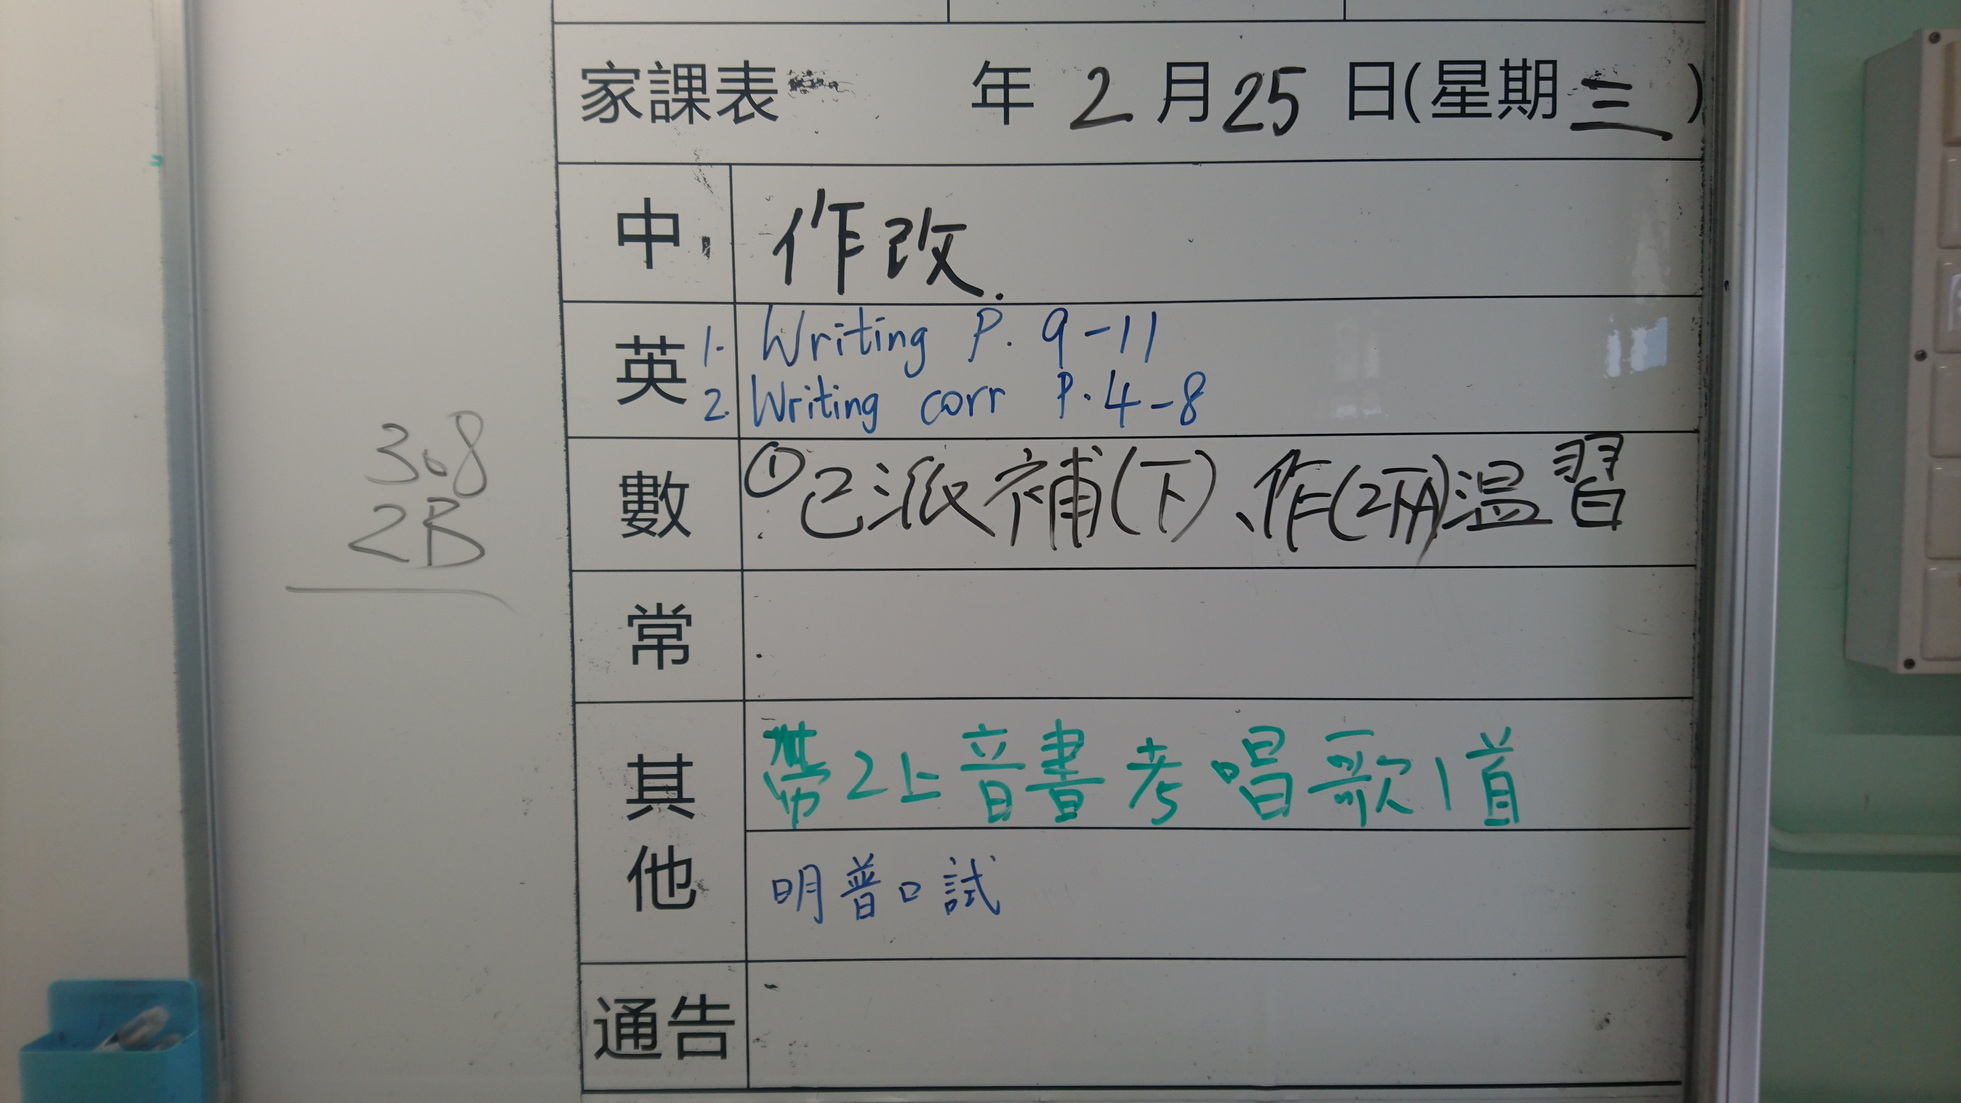 家課表 年 2 月 25 日(星期 三 )
中 作改.
英 1. Writing P. 9-11
2. Writing corr P. 4-8
308
2B
數 ①已派補(下)、作(2下A)温習
常
其他 帶2上音書考唱歌1首
明普口試
通告